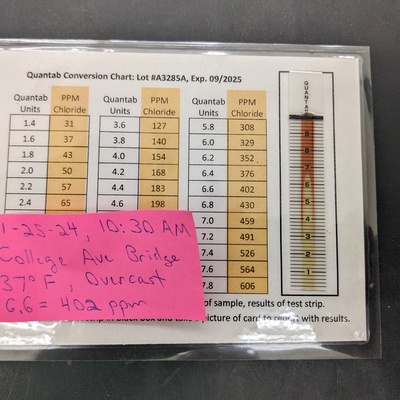 Quantab Conversion Chart: Lot #A3285A, Exp. 09/2025
Quantab Units PPM Chloride Quantab Units PPM Chloride Quantab Units PPM Chloride
1.4 31 3.6 127 5.8 308
1.6 37 3.8 140 6.0 329
1.8 43 4.0 154 6.2 352
2.0 50 4.2 168 6.4 376
2.2 57 4.4 183 6.6 402
2.4 65 4.6 198 6.8 430
7.0 459
7.2 491
7.4 526
7.6 564
7.8 606
QUANTAB
8
7
6
5
4
3
2
1
1-25-24, 10:30 AM
College Ave Bridge
37°F, Overcast
6.6 = 402 ppm
of sample, results of test strip.
picture of card to report with results.